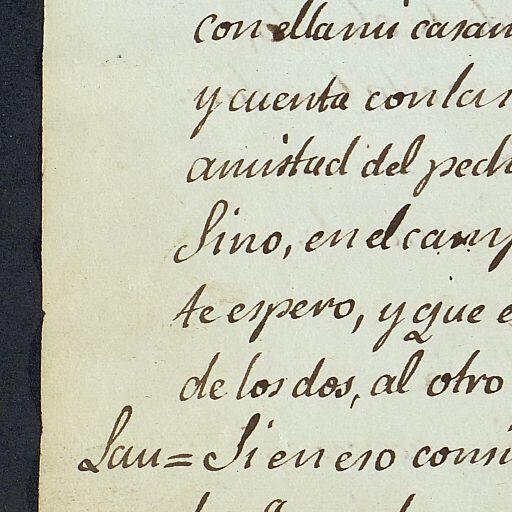 con ella mi casam
y cuenta con la
amistad del pech
Sino, en el camp
te espero, y que e
de los dos, al otro
Lau= Si en eso consi